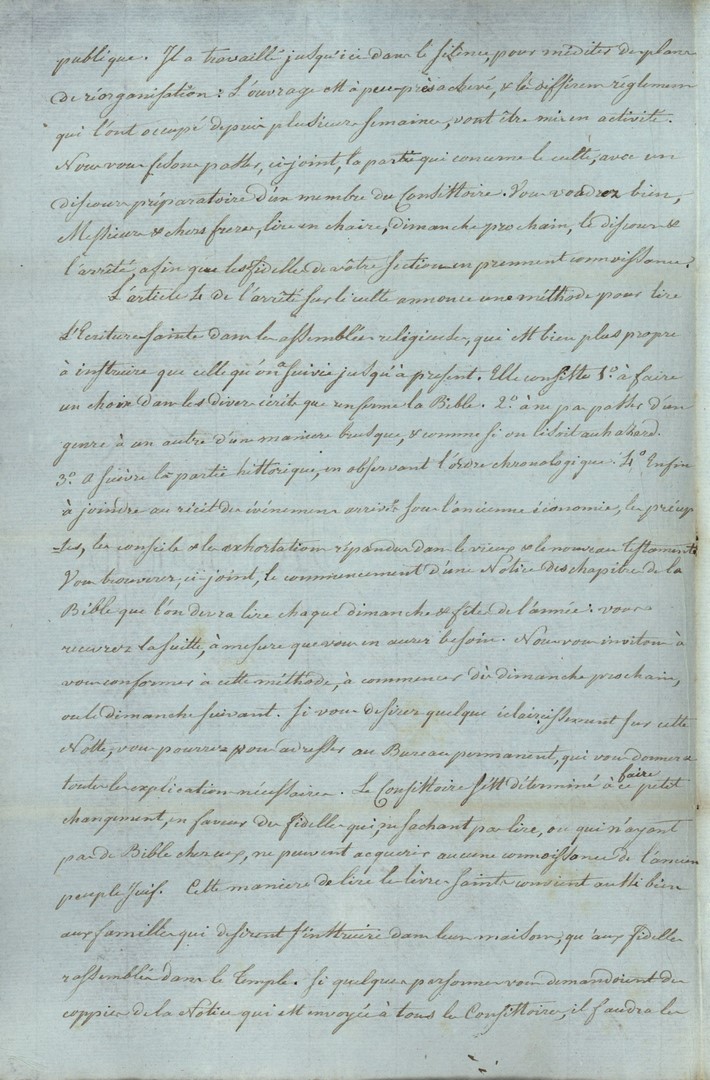 publique. Il a travaillé jusqu'ici dans le silence, pour méditer des plans
de réorganisation: L'ouvrage est à peu près achevé, & les différens réglemens
qui l'ont occupé depuis plusieurs semaines, vont être mis en activité.
Nous vous fesons passer, ci-joint, la partie qui concerne le culte, avec un
discours préparatoire d'un membre du Consistoire. Vous voudrez bien,
Messieurs & chers freres, lire en chaire, dimanche prochain, le discours &
l'arrêté, afin que les fidelles de vôtre Section en prennent connoissance.
L'article 4 de l'arrêté sur le culte annonce une méthode pour lire
L'Ecriture sainte dans les assemblées religieuses, qui est bien plus propre
à instruire que celle qu'on a suivie jusqu'à présent. Elle consiste 1.° à faire
un choix dans les divers écrits que renferme la Bible. 2.° à ne pas passer d'un
genre à un autre d'une maniere brusque, & comme si on lisoit au hazard.
3.° à suivre la partie historique, en observant l'ordre chronologique. 4.° Enfin
à joindre au récit des événemens arrivés sous l'ancienne économie, les précep
-tes, les conseils & les exhortations répandus dans le vieux & le nouveau testament.
Vous trouverez, ci-joint, le commencement d'une Notice des chapitres de la
Bible que l'on devra lire chaque dimanche & fêtes de l'année: vous
recevrez la suitte, à mesure que vous en aurez besoin. Nous vous invitons à
vous conformer à cette méthode, à commencer dès dimanche prochain,
ou le dimanche suivant. Si vous desirez quelques éclaircissement sur cette
Notte, vous pourrez vous adresser au Bureau permanent, qui vous donnera
toutes les explications nécessaires. Le Consistoire s'est déterminé à faire ce petit
changement, en faveur des fidelles qui ne sachant pas lire, ou qui n'ayant
pas de Bible chez eux, ne peuvent acquerir aucune connoissance de l'ancien
peuple Juif. Cette maniere de lire les livres saints convient aussi bien
aux familles qui desirent s'instruire dans leurs maisons, qu'aux fidelles
rassemblés dans le Temple. Si quelques personnes vous demandoient des
coppies de la Notice qui est envoyée à tous les Consistoires, il faudra les